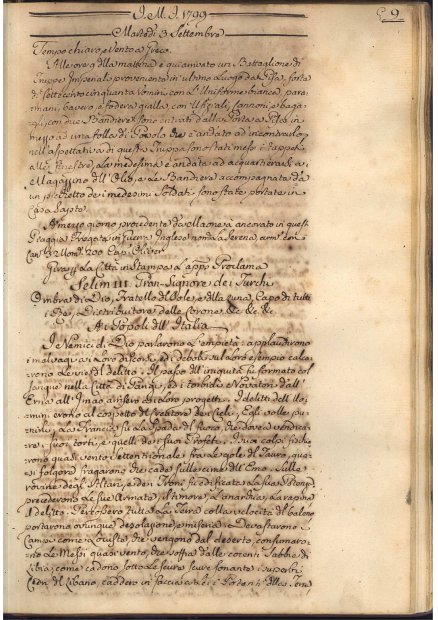 I. M. I. 1799
9
Martedì 3 Settembre
Tempo chiaro, e Vento a Greco.
Alle ore 9 della mattina è qui arrivato un Battaglione di
Truppe Imperiali proveniente in ultimo luogo da Pisa, forte
di Settecento cinquanta Uomini con l'Uniforme bianca, para-
mani, bavero, e fodera gialla con Ufiziali, Cannoni, e baga-
gli, con due Bandiere. Sono entrati dalla Porta a Pisa in
mezzo ad una folla di Popolo che è andato ad incontrarlo,
nell'aspettativa di questa Truppa sono stati messi i Tappeti
alle Finestre, La medesima è andata ad acquartierarsi a
Magazzino dell'Olio, e Le Bandiere accompagnate da
un picchetto dei medesimi Soldati sono state portate in
Casa
A mezzo giorno procedente da Maone si è ancorato in questa
Spiaggia Fregata in Guerra Inglese nomta La Serena, arma con
Cannni 32 Uomi 200 Cap.
Girava La Città in Stampa L'app. Proclama
Selim III. Gran-Signore dei Turchi
Ombra di Dio, Fratello del Sole, e della Luna, Capo di tutti
i Re, Distributore delle Corone &c &c &c
Ai Popoli dell'Italia
I Nemici di Dio parlarono L'empietà: applaudirono
i malvagi ai Loro discorsi, ed i deboli sul Loro esempio calca-
rono Le vie del delitto. Il patto dell'iniquità fu formato col
Sangue nella Città di Parigi, ed i torbidi Novatori dall'
Etna all'Imao arrisero ai Loro progetti. I delitti dell'Uo-
mini erano al cospetto del Creatore dei Cieli, Egli volle pu-
nirli, La Francia fu La Spada di fuoco, che doveva vendica-
re i suoi torti, e quelli dei suoi Profeti. I suoi colpi fischia-
rono quasi vento Settentrionale fra Le gole del Tauro, qua-
si folgore fragorono che cade sulle cime dell'Emo. Sulle
rovine degl'Altari, e dei Troni fu edificata La sua Potenza
precederono Le sue Armate il timore, L'anarchia, La rapina
il delitto. Percossero tutta La Terra colla velocità del baleno
portarono ovunque desolazione, e miseria. Devastarono i
Campi come Locuste, che vengono dal deserto, consumaro-
no Le Messi quasi vento, che soffia dalle cocenti Sabbie di
Libia, come cadono sotto La scure
del Libano, caddero in faccia